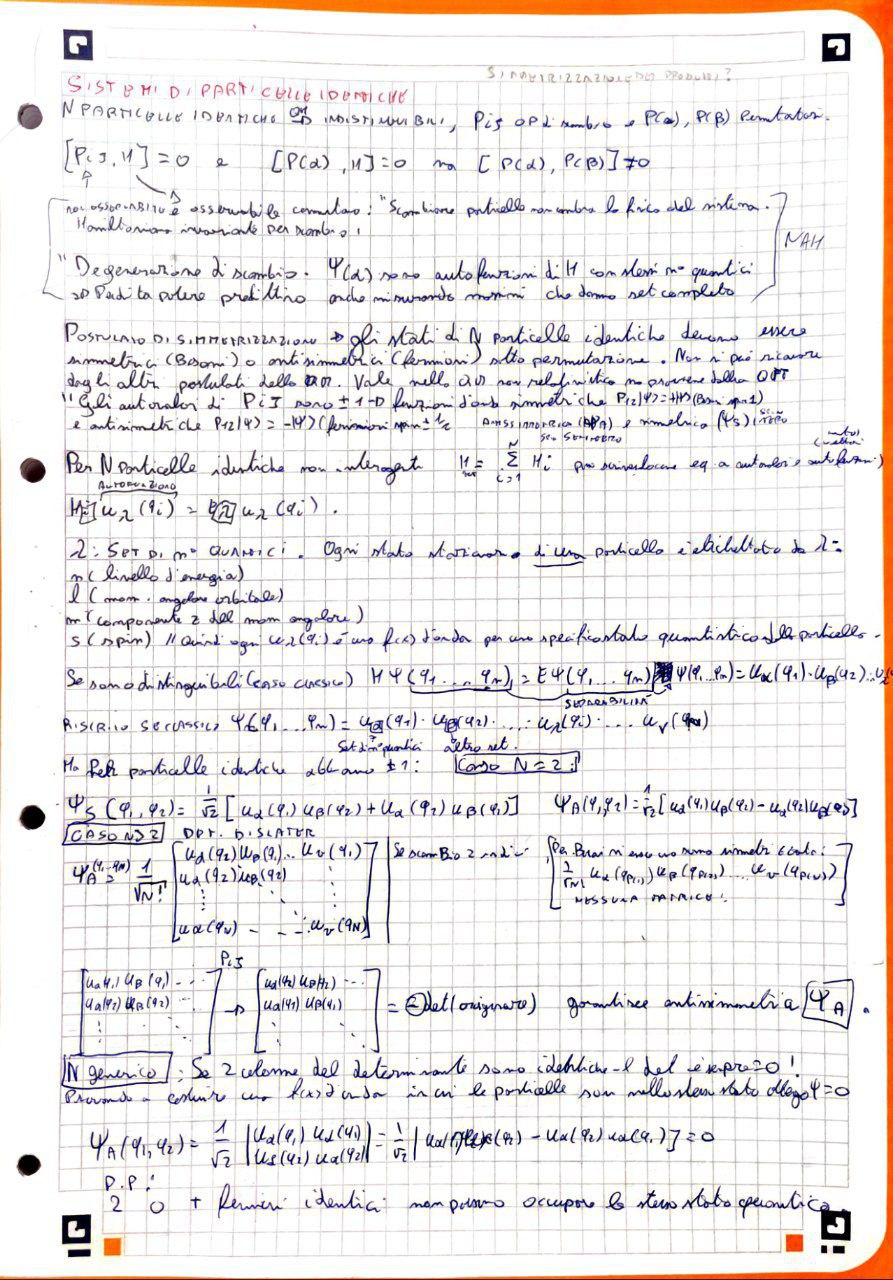 SIMMETRIZZAZIONE DEI PRODOTTI?
SISTEMI DI PARTICELLE IDENTICHE
N PARTICELLE IDENTICHE INDISTINGUIBILI, Pij OP di scambio e P(α), P(β) Permutatori.
[Pij, H] = 0 e [P(α), H] = 0 ma [P(α), P(β)] ≠ 0
è osservabile commutano: "Scambiare particelle non cambia la fisica del sistema.
Hamiltoniano invariante per scambio!
NAH
"Degenerazione di scambio. Ψ(α) sono autofunzioni di H con stessi n° quantici
=> Perdita potere predittivo anche misurando che danno set completo
POSTULATO DI SIMMETRIZZAZIONE → gli stati di N particelle identiche devono essere
simmetrici (Bosoni) o antisimmetrici (fermioni) sotto permutazione. Non si può ricavare
dagli altri postulati della QM. Vale nella QM non relativistica ma proviene dalla QFT
"Gli autovalori di Pij sono ±1 → funzioni d'onda simmetriche P12|Ψ> = +|Ψ> (Bosoni spin 1)
e antisimmetriche P12|Ψ> = -|Ψ> (fermioni spin ± 1/2 ANTISIMMETRICA (ΨA) e simmetrica (ΨS)
Per N particelle identiche non interagenti H = Σ Hi N i=1 può scriversi come eq. a autovalori e autofunzioni)
AUTOFUNZIONE
Hi uλ(qi) = Eλ uλ(qi).
λ: SET DI n° QUANTICI. Ogni stato stazionario di una particella è etichettato da λ=
n (livello d'energia)
l (mom. angolare orbitale)
m (componente z del mom angolare)
s (spin) // Quindi ogni uλ(qi) è una f(x) d'onda per uno specifico stato quantistico della particella.
Se sono distinguibili (caso classico) HΨ(q1 ... qn) = EΨ(q1 ... qn) Ψ(q1...qn) = uα(q1)·uβ(q2)...
SEPARABILITÀ
RISCRITTO SE CLASSICO Ψ(q1, ... qn) = uα(q1)·uβ(q2)· ... · uλ(qi)· ... uν(qN)
Set di n° quantici altro set.
Ma Per particelle identiche abbiamo ±1: Caso N=2:
ΨS(q1, q2) = 1/√2 [uα(q1) uβ(q2) + uα(q2) uβ(q1)] ΨA(q1, q2) = 1/√2 [uα(q1)uβ(q2) - uα(q2)uβ(q1)]
CASO N>2 DET. DI SLATER
ΨA(q1...qN) = 1/√N! [uα(q1) uβ(q1)... uν(q1)
uα(q2) uβ(q2)
uα(qN) - - - uν(qN)]
Se scambio 2 indici
Per Bosoni
1/√N! uα(qP(1)) uβ(qP(2)) ... uν(qP(N))
NESSUNA MATRICE!
Pij
[uα(q1) uβ(q1) ... uα(q2) uβ(q2) ...] → [uα(q2) uβ(q2) ... uα(q1) uβ(q1)] = - det(originare) garantisce antisimmetria ΨA.
N generico: Se 2 colonne del determinante sono identiche il det è sempre = 0!
Provando a costruire una f(x) d'onda in cui le particelle son nello stesso stato Ψ=0
ΨA(q1, q2) = 1/√2 |uα(q1) uα(q1) uα(q2) uα(q2)| = 1/√2 [uα(q1)uα(q2) - uα(q2) uα(q1)] = 0
P.P:
2 o + fermioni identici non possono occupare lo stesso stato quantico.